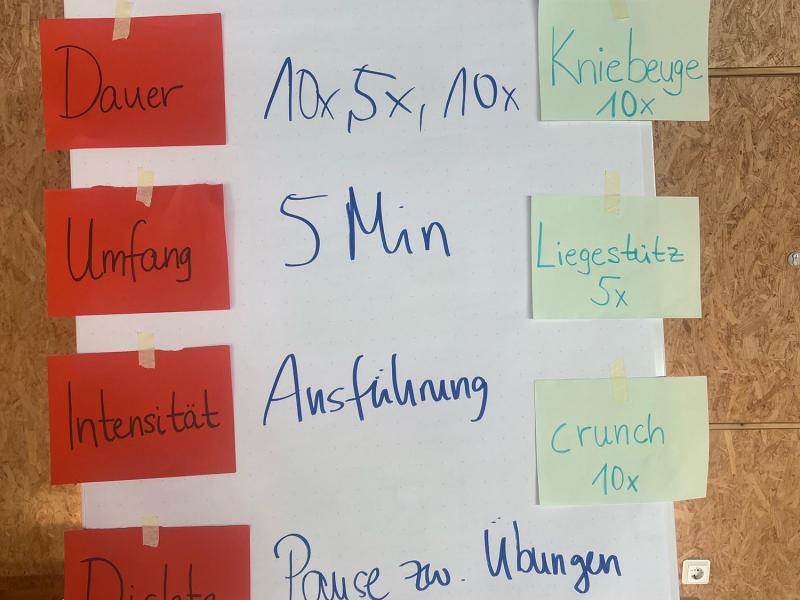 Dauer
10x, 5x, 10x
Kniebeuge
10x
Umfang
5 Min
Liegestütz
5x
Intensität
Ausführung
crunch
10x
Dichte
Pause zw. Übungen